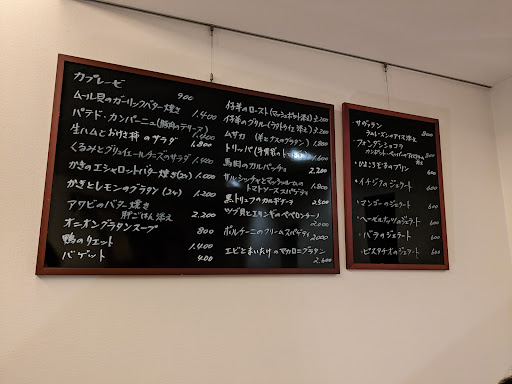 カプレーゼ 900
ムール貝のガーリックバター焼き 1.400
パテド・カンパーニュ(豚肉のテリーヌ) 1.400
生ハムとおけき折のサラダ 1.800
くるみとグリュイエールチーズのサラダ 1.400
かきのエシャロットバター焼き(2コ) 1.000
かきとレモンのグラタン(2コ) 1.200
アワビのバター焼き
肝ごはん添え 2.200
オニオングラタンスープ 800
鴨のリエット 1.400
バゲット 400
仔羊のロースト(マッシュポテト添え) 3.200
仔羊のグリル(ラタトゥイユ添え) 3.200
ムサカ (羊とナスのグラタン) 1.800
トリッパ(牛胃袋のトマト 1.600
馬肉のカルパッチョ 2.200
サルシッチャとマッシュルームの
トマトソーススパゲティ 1.800
黒トリュフのカルボナーラ 2500
ツブ貝とエリンギのペペロンチーノ
2.000
ポルチーニのクリームスパゲティ
2000
エビとまいたけのマカロニグラタン
2.600
・サヴァラン 800
ラムレーズンのアイス添え
・フォンダンショコラ 800
・ひよこ豆のプリン 600
・イチジクのジェラート 600
・マンゴーのジェラート 600
・ヘーゼルナッツのジェラート 600
・バラのジェラート 600
・ピスタチオのジェラート 600